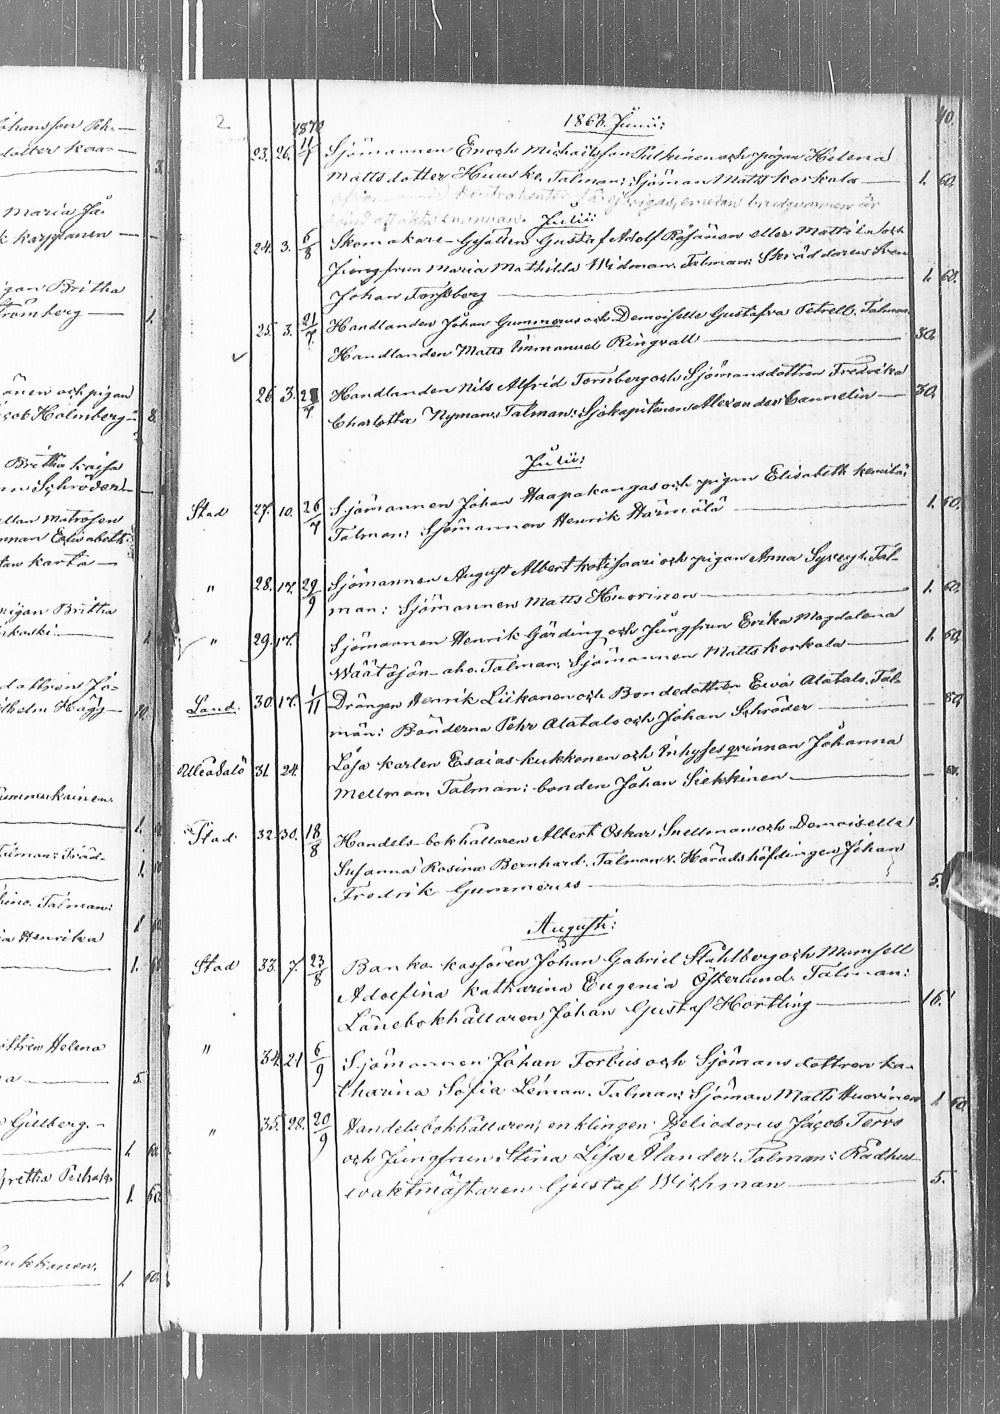 ohansson Peh.
dotter Kaa-
3.
Maria Ja-
k Karppanen
igan Britha
Strömberg
1.
änen och pigan
acob Holmberg
8.
Britha Kaisa
Schröder
Matrosen
innan Elisabeth
Karta
pigan Britha
1.
dottren Jo-
ilhelm Hägg
10.
ummukainen.
1. 60
Talman: Träd-
1. 60
Talman:
1 60
ia Henrika
1. 60
ottren Helena
5.
Gillberg.
1. 60
Gretha
1. 60.
ukkanen.
1. 60.
2
40.
1870
1868. Junii:
23. 26. 11/7 Sjömannen Enoch Michaelsson Pulkinen och pigan Helena
Mattsdotter Huuske. Talman: Sjöman Matts Korkala 1. 60
emedan brudgummen är
Julii
24. 3. 6/8 Skomakare-Gesällen Gustaf Adolf Rosänen eller Mattila och
Jungfrun Maria Mathilda Widman. Talman: Skräddaren Sven
Johan Forssberg 1. 60.
25. 3. 21/7. Handlanden Johan Gummerus och Demoiselle Gustafva Petrell. Talman
Handlanden Matts Emmanuel Ringvall 30.
26. 3. Handlanden Nils Alfrid Tornberg och Sjömansdottren Fredrika
Charlotta Nyman: Talman: Sjökapitenen Alexander Cannelin 30.
Julii:
Stad 27. 10. 26/7 Sjömannen Johan Haapakangas och pigan Elisabeth
Talman: Sjömannen Henrik Härmälä 1. 60.
" 28. 17. 29/9 Sjömannen August Albert Kotisaari och pigan Anna Tal-
man: Sjömannen Matts Huovinen 1. 60.
" 29. 17. Sjömannen Henrik Gärding och Jungfrun Erika Magdalena
Wäätäjän-aho. Talman: Sjömannen Matts Korkala 1. 60
Land. 30. 17. 1/11 Drängen Henrik Liikanen och Bondedottren Ewa Alatalo. Tal-
män: Bönderna Pehr Alatalo och Johan Schröder 80.
Uleåsalo 31. 24. Lösa karlen Esaias Kukkonen och Inhyses qvinnan Johanna
Mellman. Talman: bonden Johan Siekkinen
Stad 32. 30. 18/8 Handels-bokhållaren Albert Oskar Snellman och Demoiselle
Susanna Rosina Bernhard. Talman: v. Häradshöfdingen Johan
Fredrik Gummerus 5.
Augusti:
Stad 33. 7. 23/8 Banko-kassören Johan Gabriel Ståhlberg och Mamsell
Adolfina Katharina Eugenia Österlund. Talman:
Länebokhållaren Johan Gustaf Hortling 16.
" 34. 21. 6/9 Sjömannen Johan Torbus och Sjömans dottren Ka-
tharina Sofia Leman. Talman: Sjöman Matts Huovinen 1. 60.
" 35. 28. 20/9 Handelsbokhållaren, enklingen Heliodorus Jacob Tervo
och Jungfrun Stina Lisa Ålander: Talman: Rådhus-
vaktmästaren Gustaf Wichman 5.